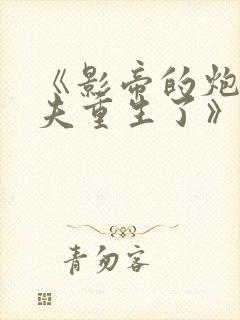 《影帝的炮
夫重生了》
青勿客